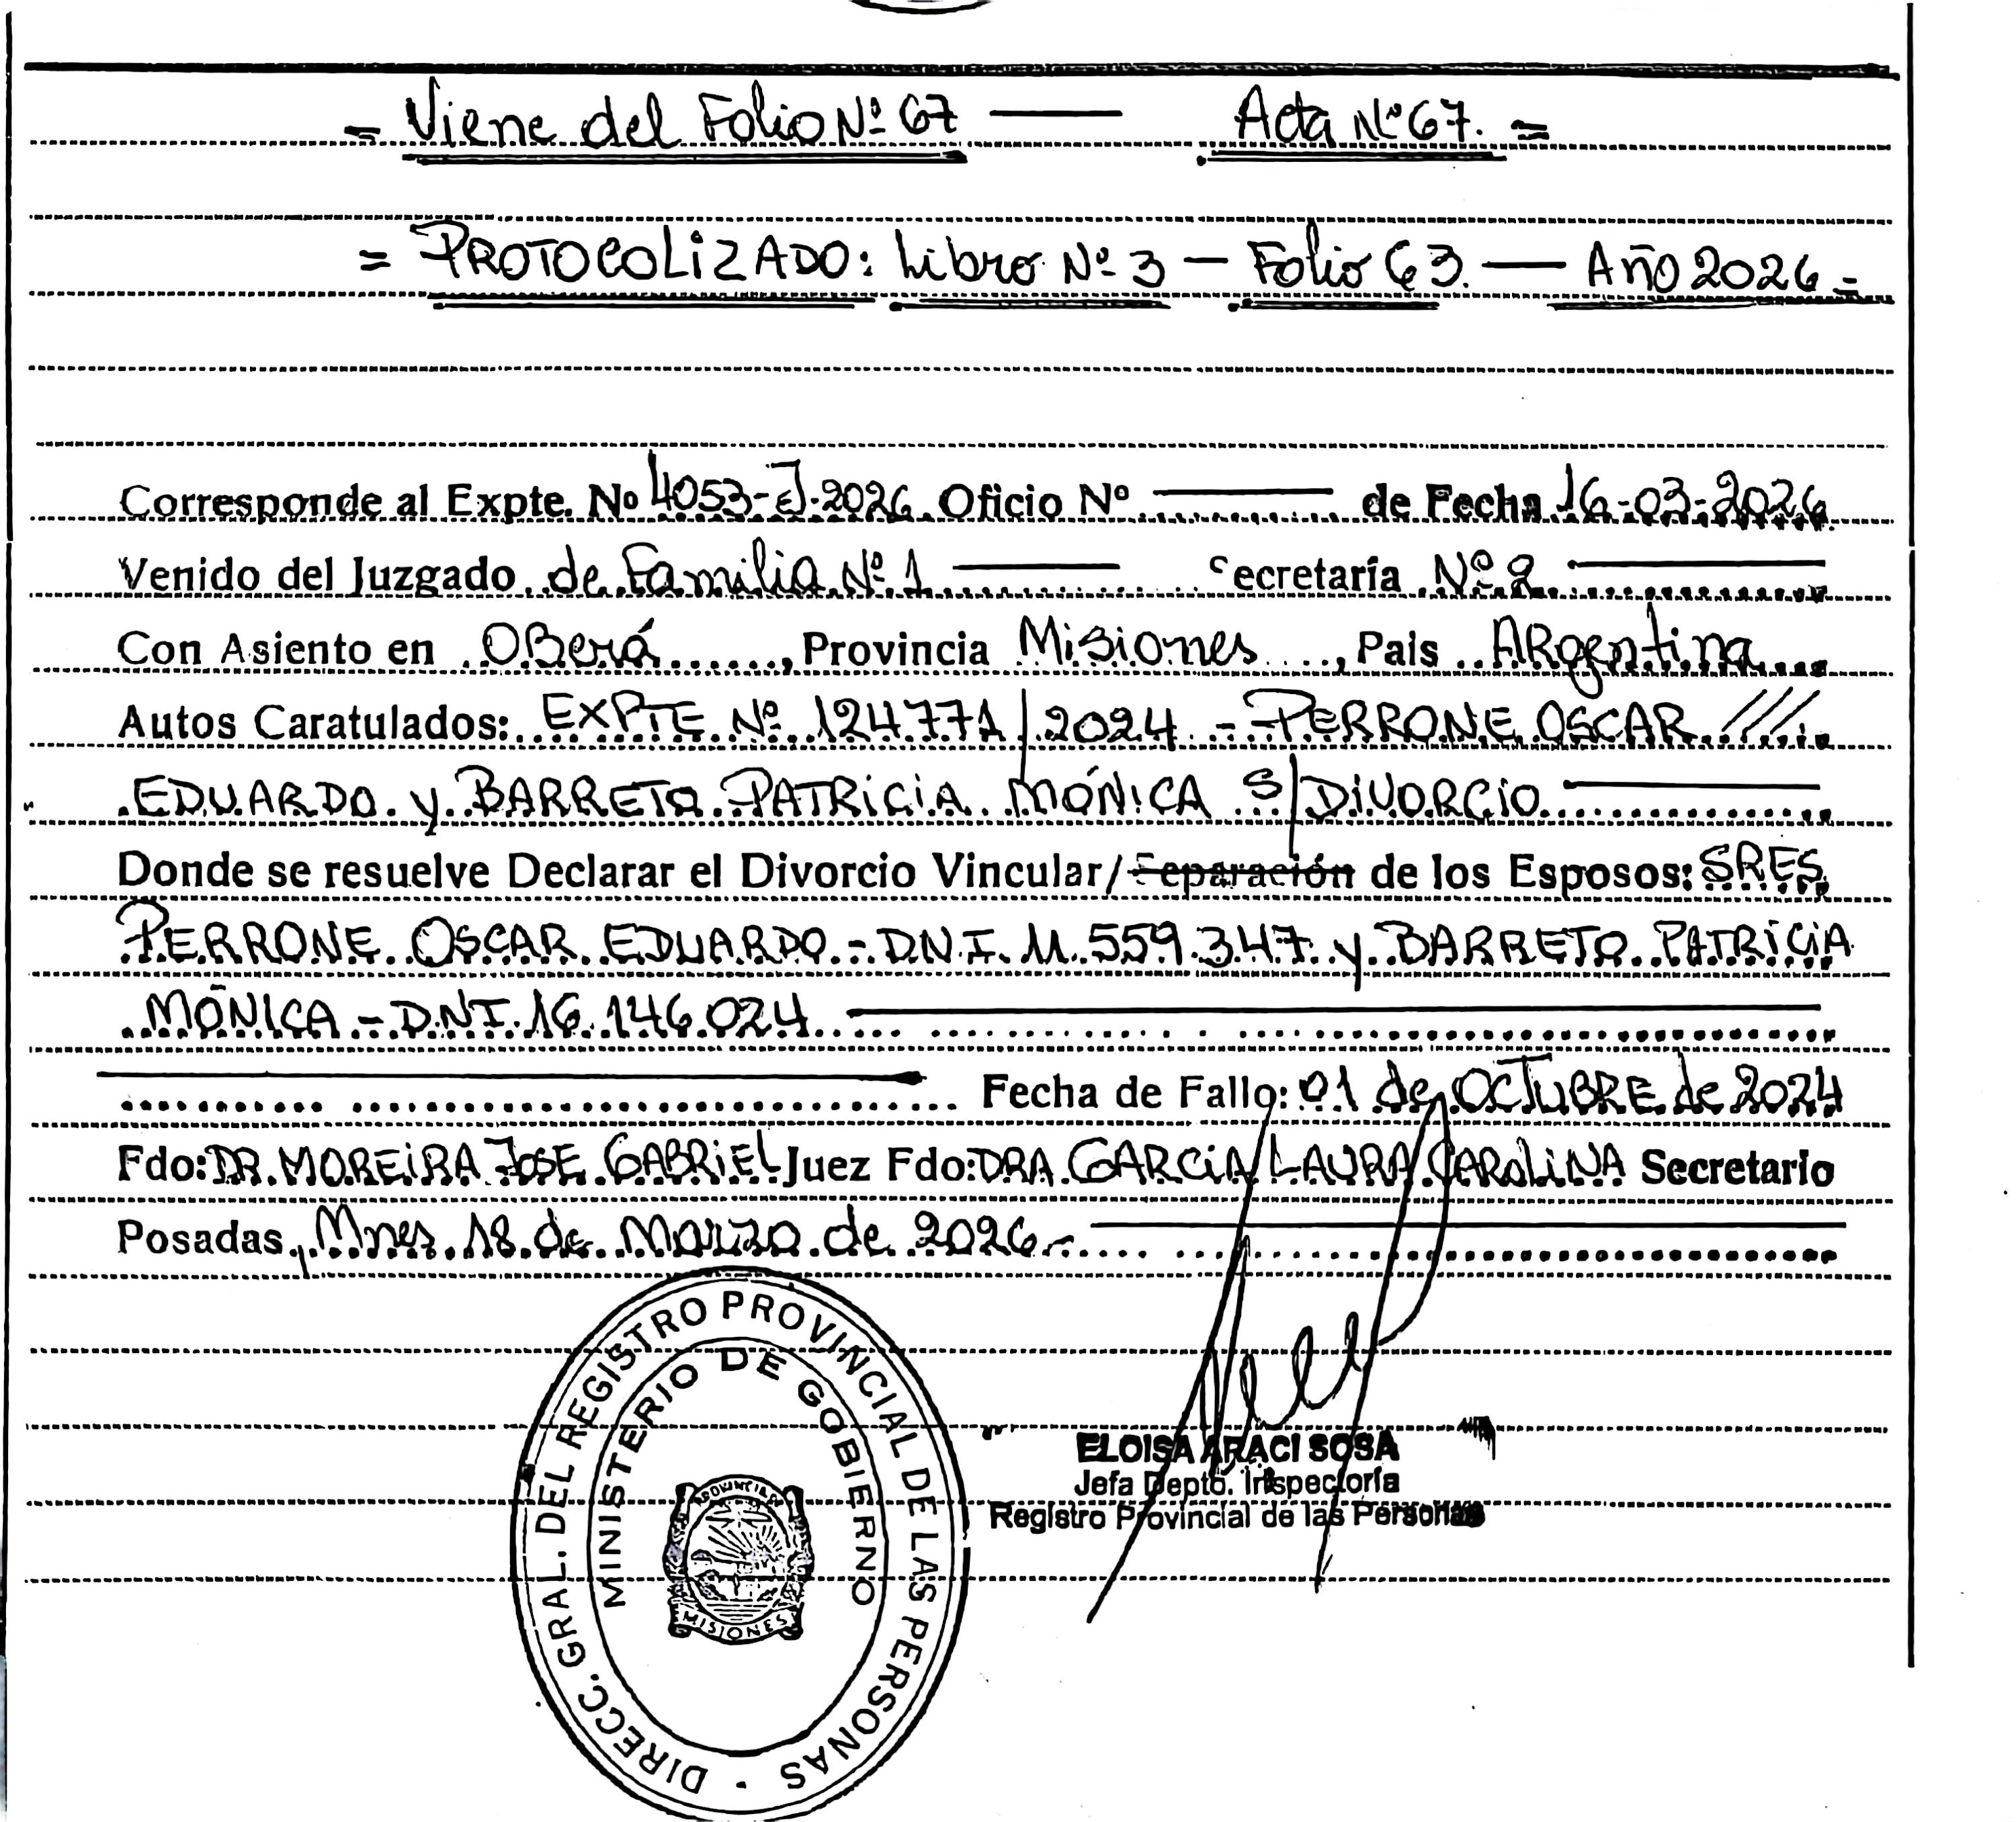 = Viene del Folio Nº 67 — Acta Nº 67. =
= PROTOCOLIZADO: Libro Nº 3 — Folio 63. — Año 2026 =
Corresponde al Expte. Nº 4053-J-2026 Oficio Nº de Fecha 16-03-2026
Venido del Juzgado de Familia Nº 1 ecretaría Nº 2
Con Asiento en OBerá, Provincia Misiones, Pais ARgentina
Autos Caratulados: EXPTE Nº 124771/2024 - PERRONE OSCAR ///
EDUARDO y BARRETO PATRICIA MÓNICA S/DIVORCIO
Donde se resuelve Declarar el Divorcio Vincular/Separación de los Esposos: SRES
PERRONE OSCAR EDUARDO - D.N.I. 11.559.347 y BARRETO PATRICIA
MÓNICA - D.N.I. 16.146.024
Fecha de Fallo: 01 de OCTUBRE de 2024
Fdo: DR. MOREIRA JOSE GABRIEL Juez Fdo: DRA. GARCIA LAURA CAROLINA Secretario
Posadas, Mnes. 18 de Marzo de 2026
DIRECC. GRAL. DEL REGISTRO PROVINCIAL DE LAS PERSONAS
MINISTERIO DE GOBIERNO
PROVINCIA DE
MISIONES
ELOISA ARACI SOSA
Jefa Depto. Inspectoría
Registro Provincial de las Personas